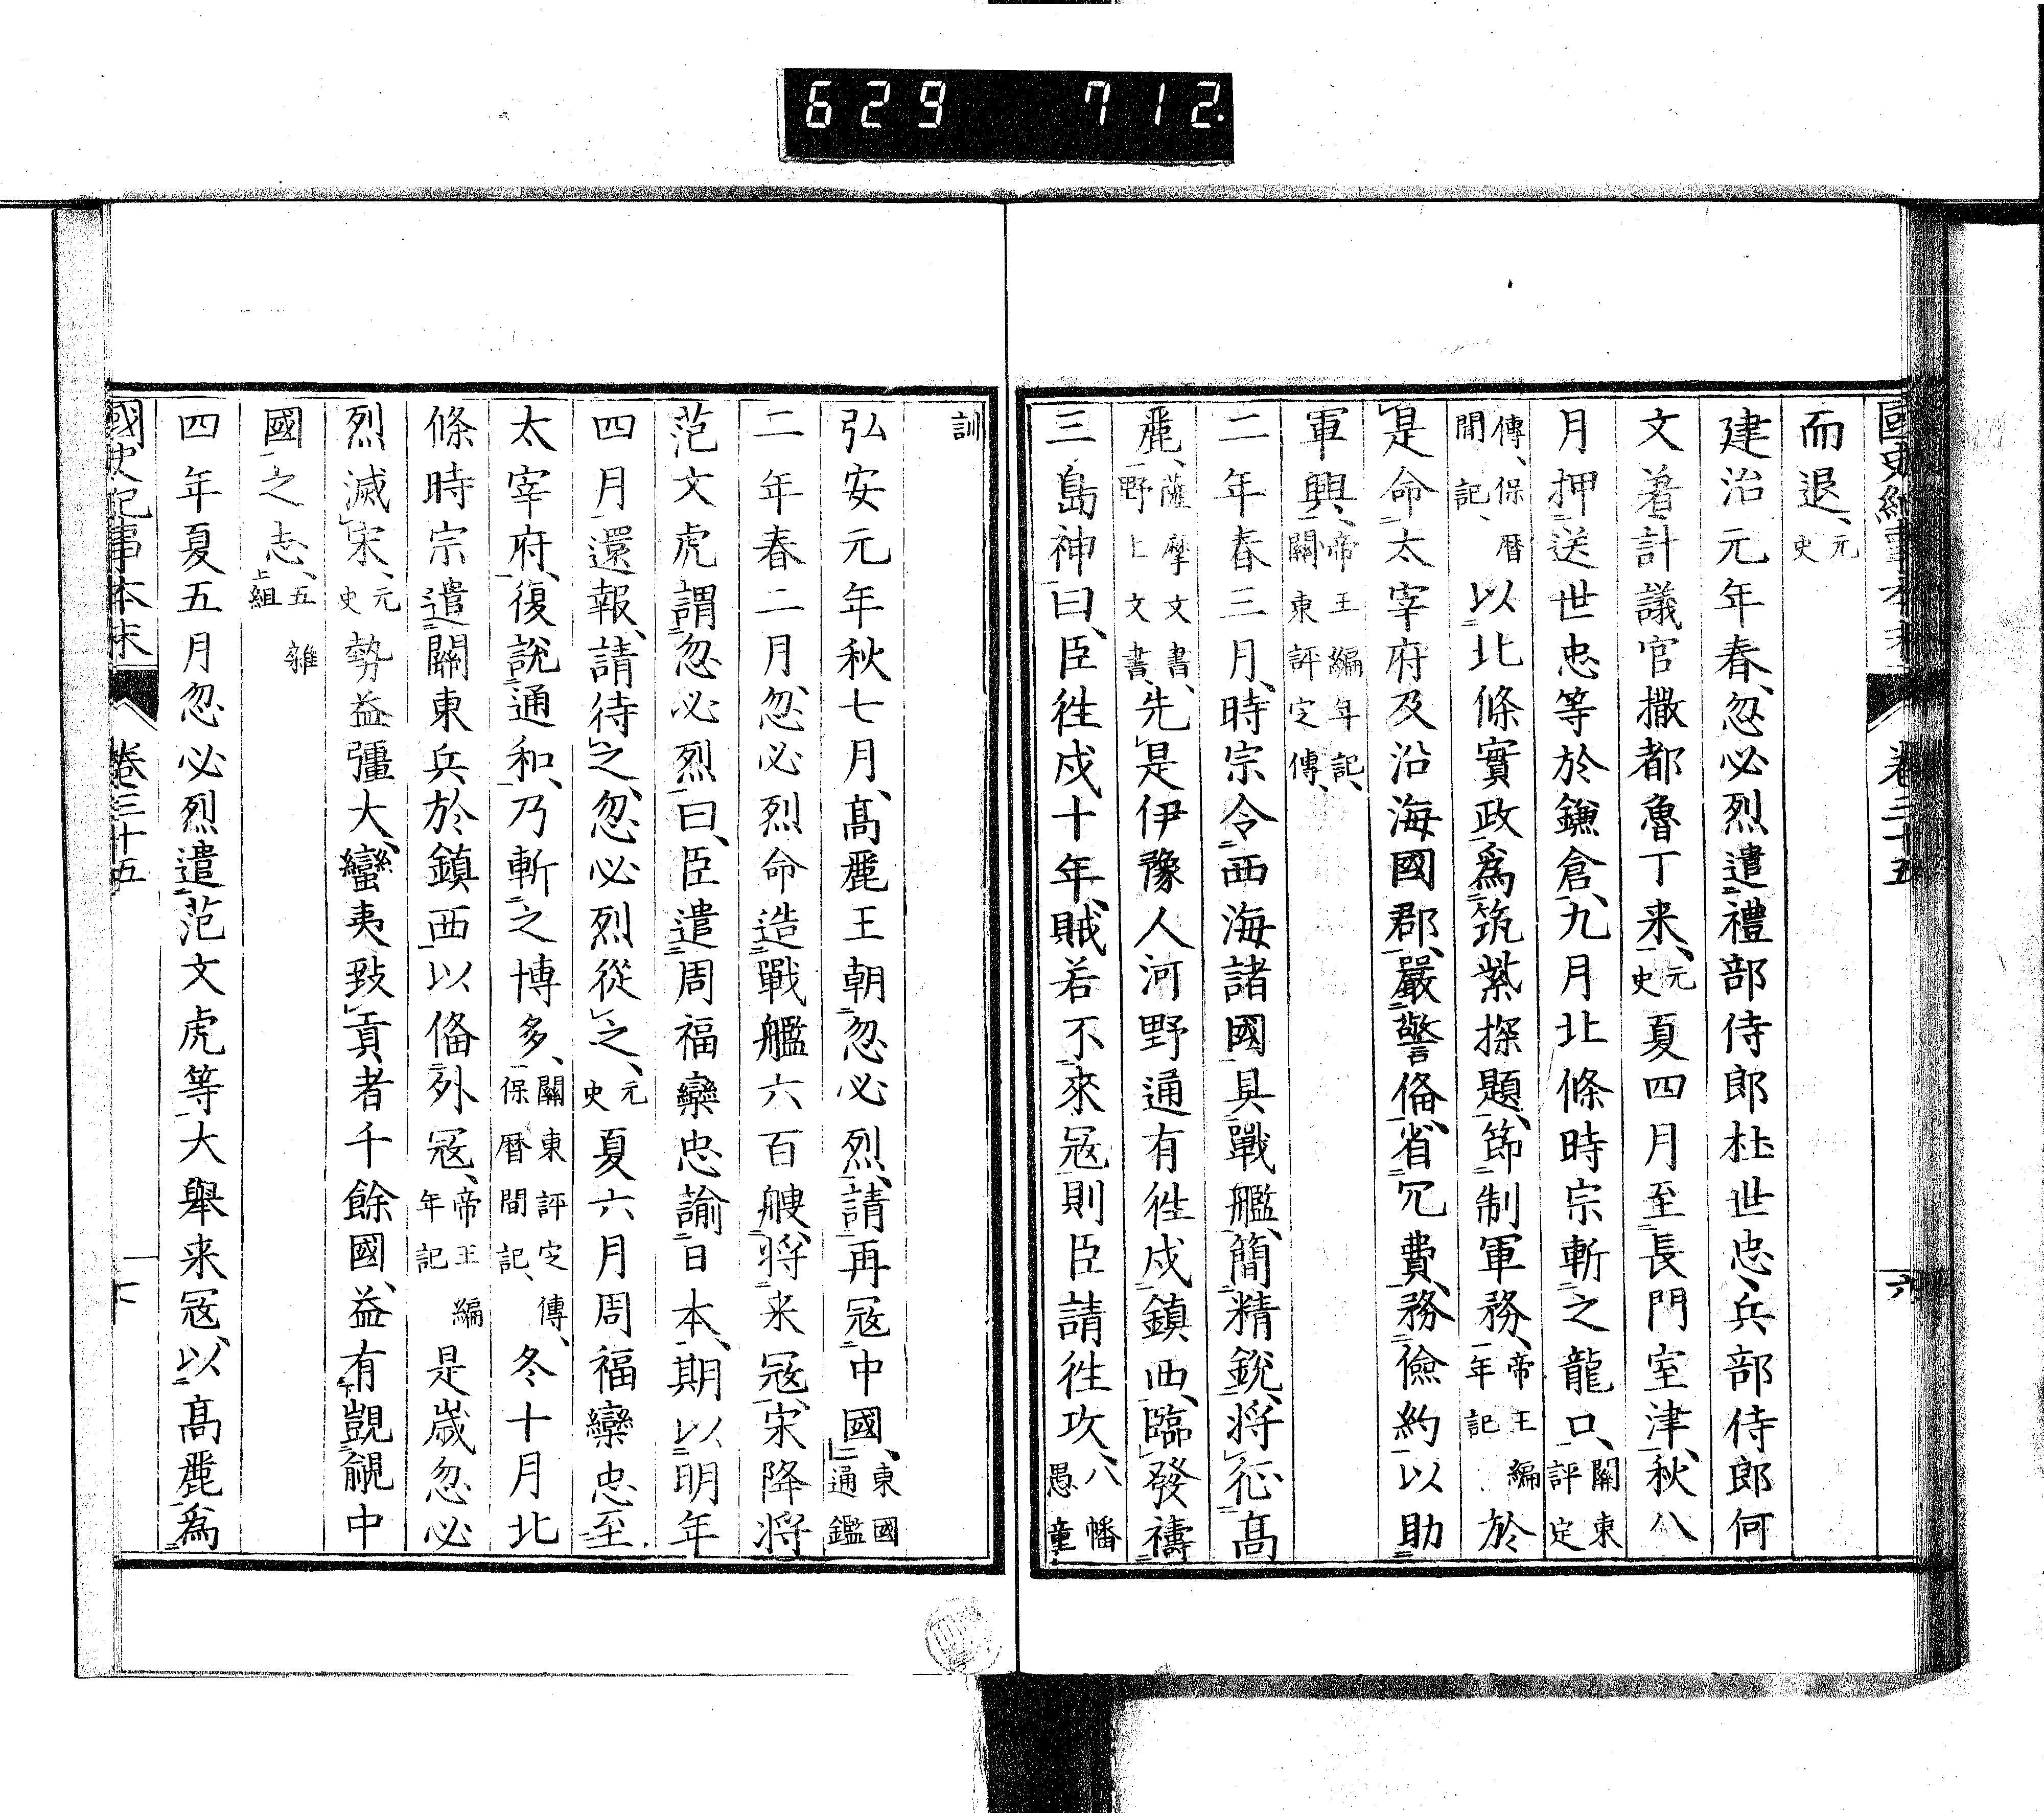 629 712.
國史紀事本末 卷三十五 六
而退、元史
建治元年春、忽必烈遣禮部侍郎杜世忠、兵部侍郎何
文著計議官撒都魯丁来、元史夏四月至長門室津、秋八
月押送世忠等於鎌倉、九月北條時宗斬之龍口、關東評定
傳、保曆間記、以北條實政爲筑紫探題、節制軍務、帝王編年記於
是命太宰府及沿海國郡、嚴警俻、省冗費、務儉約以助
軍興、帝王編年記、關東評定傳、
二年春三月、時宗令西海諸國具戰艦、簡精銳、将征高
麗、薩摩文書、野上文書、先是伊豫人河野通有徃戍鎮西、臨發禱
三島神曰、臣徃戍十年、賊若不來冦則臣請徃攻、八幡愚童
訓
弘安元年秋七月、高麗王朝忽必烈、請再冦中國、東國通鑑
二年春二月、忽必烈命造戰艦六百艘、将来冦、宋降将
范文虎謂忽必烈曰、臣遣周福欒忠諭日本、期以明年
四月還報、請待之、忽必烈從之、元史夏六月周福欒忠至
太宰府、復說通和、乃斬之博多、關東評定傳、保曆間記、冬十月北
條時宗遣關東兵於鎮西以俻外冦、帝王編年記是歲忽必
烈滅宋、元史勢益彊大、蠻夷致貢者千餘國、益有覬覦中
國之志、五雜組
四年夏五月忽必烈遣范文虎等大舉来冦、以高麗爲
國史紀事本末 卷三十五